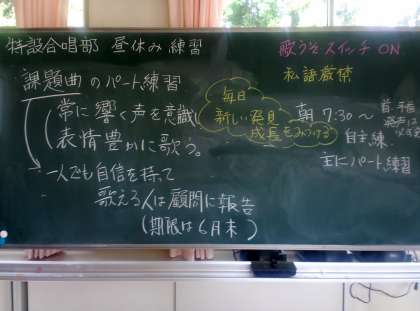 特設合唱部 昼休み 練習
歌うぞ スイッチ ON
私語厳禁
課題曲のパート練習
常に響く声を意識
表情豊かに歌う。
毎日
新しい発見
成長をみつける
朝 7:30～
自主練
主にパート練習
一人でも自信を持って
歌える人は顧問に報告
(期限は6月末)